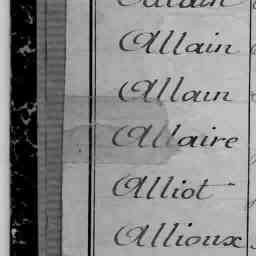 Allain
Allain
Allaire
Alliot
Allioux